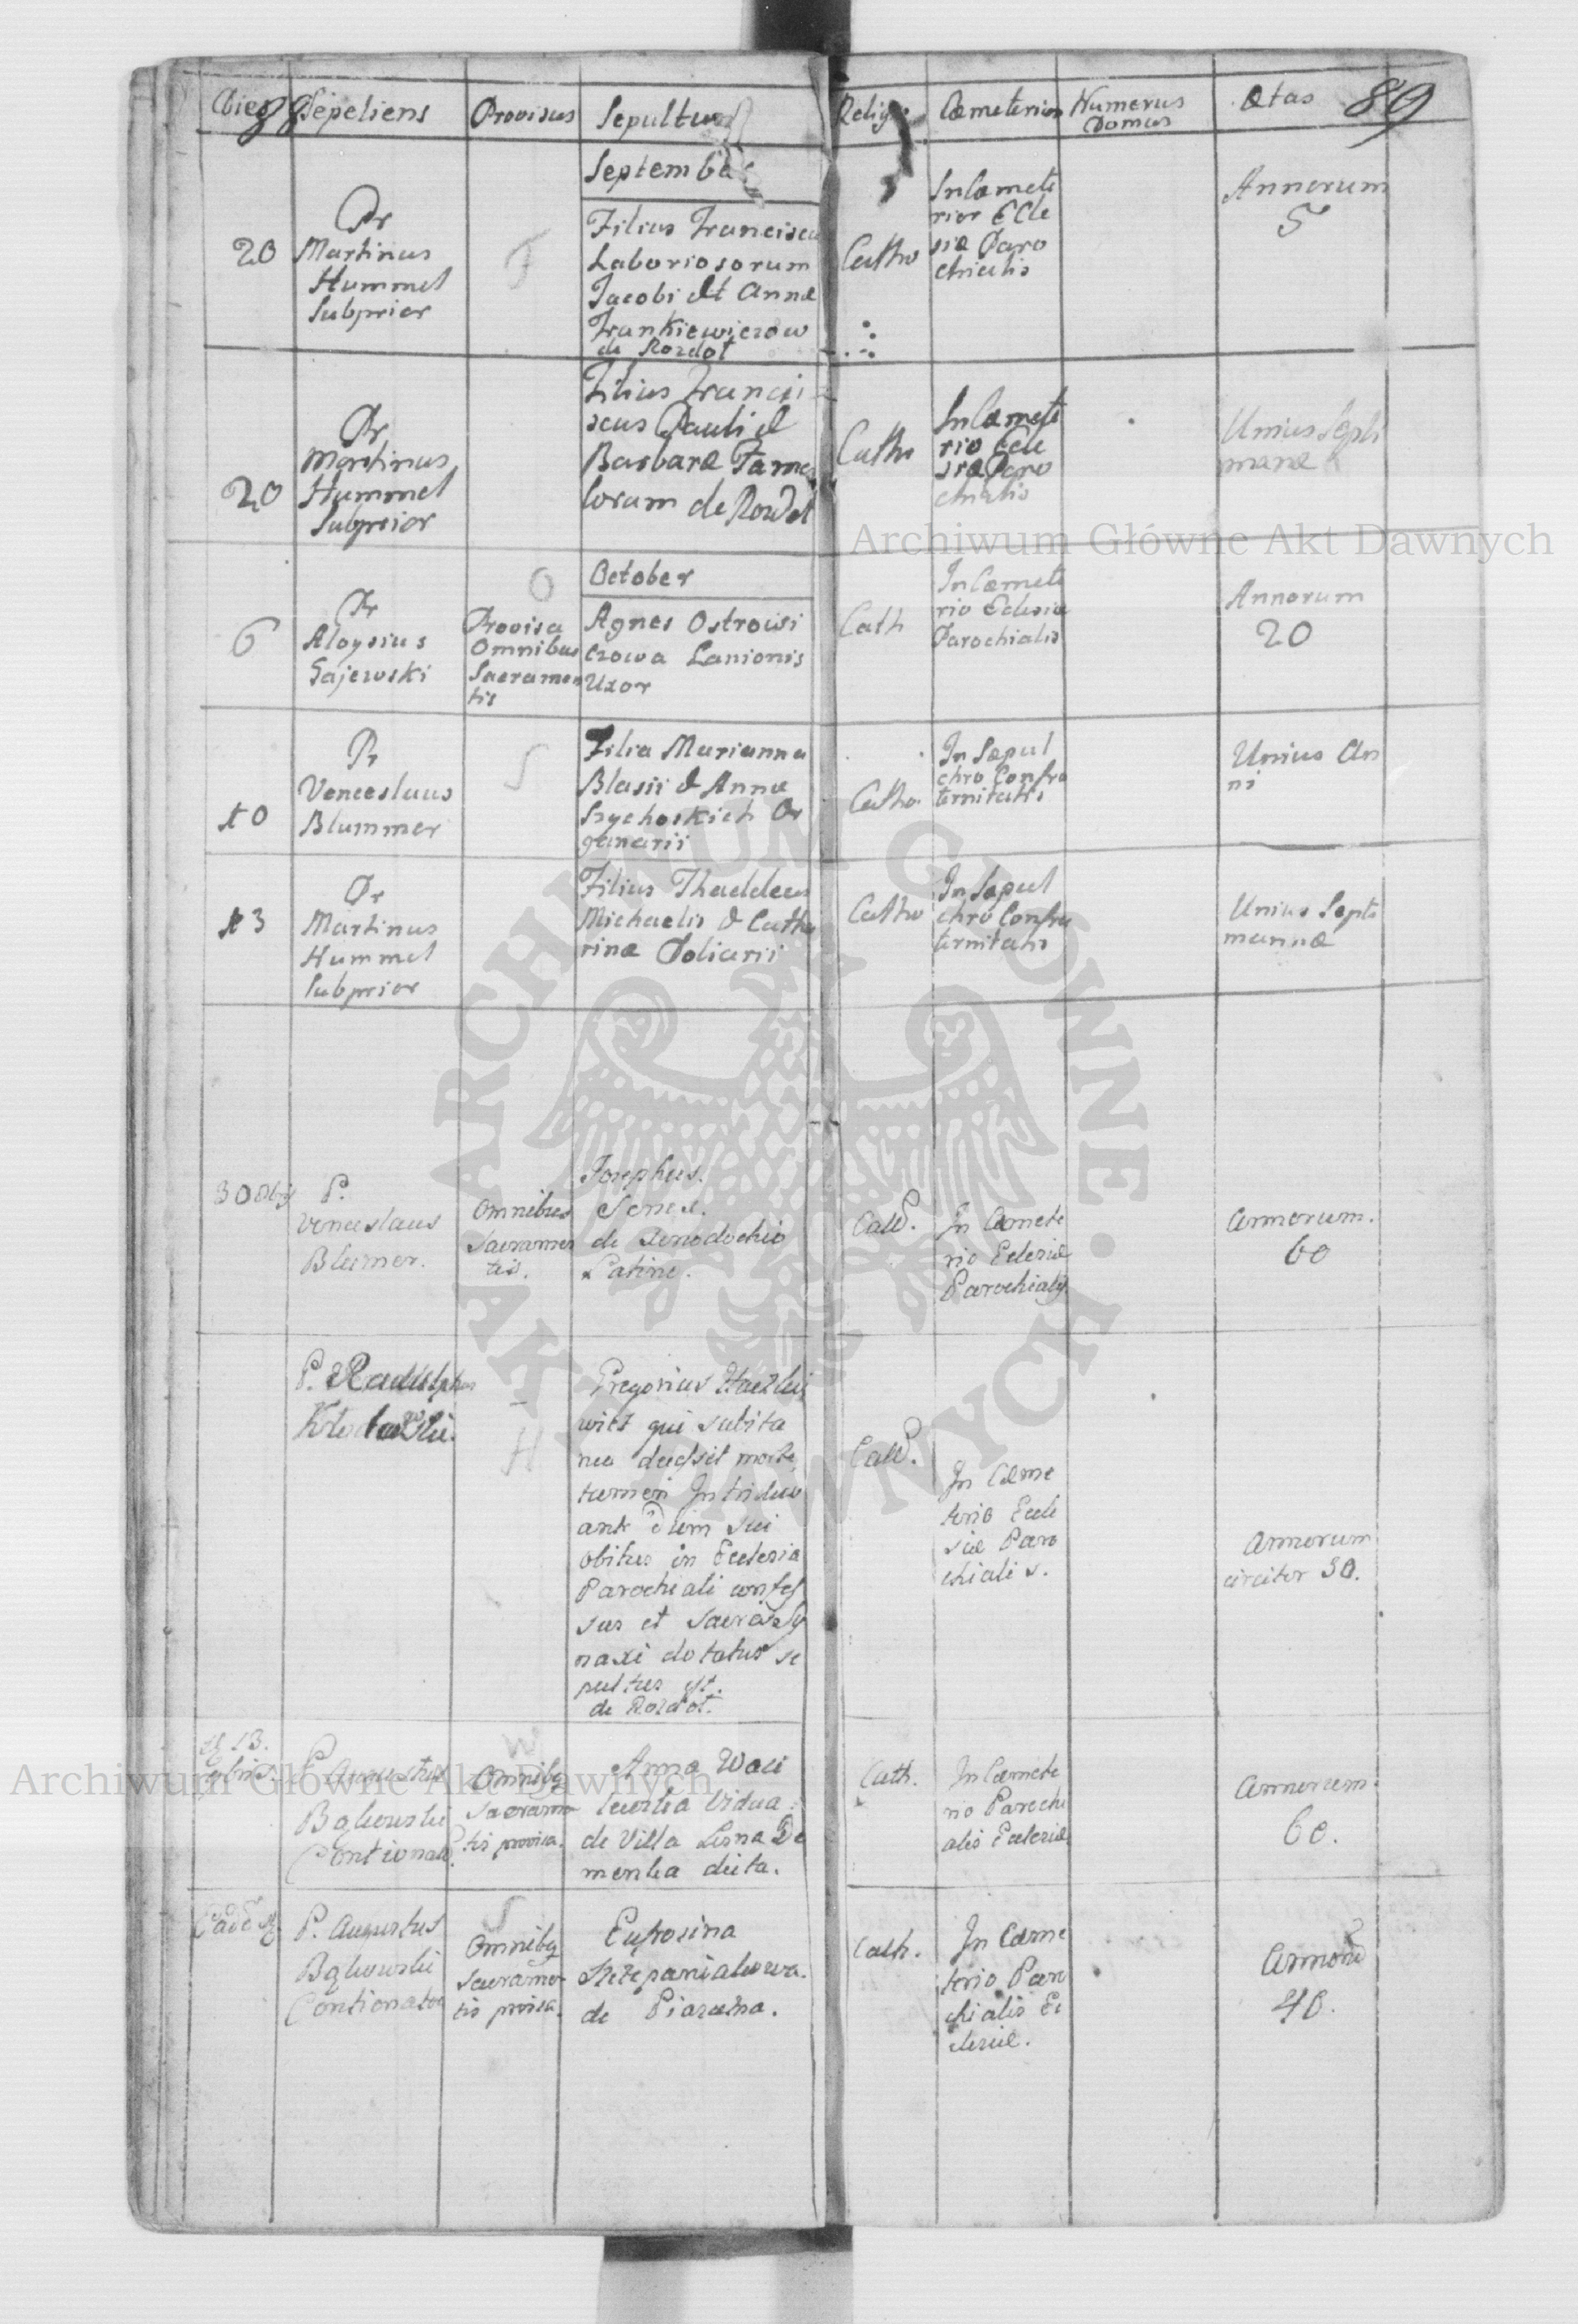 Dies 88 Sepeliens Provisus Sepultura Relig: Cæmeterium Numerus Domus Ætas 89
September
20
Pr
Martinus
Hummel
Subprior
F
Filius Franciscu
Laboriosorum
Jacobi et Annæ
Frankiewiczow
de Rozdoł
Catho
In Cæmete
rior Ecle
siæ Paro
chialis
Annorum
5
20
Pr
Martinus
Hummel
Subprior
Filius Franci
scus Pauli et
Barbaræ Famu
lorum de Rozdoł
Catho
In Cæmete
rio Ecle
siæ Paro
chialis
Unius Septi
manæ
October
6
Pr
Aloysius
Gajewski
O
Provisa
Omnibus
Sacramen
tis
Agnes Ostrowi
czowa Lanionis
Uxor
Cath
In Cæmete
rio Eclesiæ
Parochialis
Annorum
20
10
Pr
Venceslaus
Blummer
S
Filia Marianna
Blasii et Annæ
Szychoskich Or
ganarii
Catho.
In Sæpul
chro Confra
ternitatis
Unius An
ni
13
Pr
Martinus
Hummel
Subprior
Filius Thaddeus
Michaelis et Catha
rinæ Doliarii
Catho
In Sæpul
chro Confra
ternitatis
Unius Septi
mannæ
30
P.
Venceslaus
Blumer.
Omnibus
Sacramen
tis.
Josephus.
Senex.
de Xenodochio
Latine.
Cath.
In Cæmete
rio Eclesiæ
Parochialis
Annorum.
60
P. Radulphus
H
Gregorius
wicz qui subita
nea decessit morte,
tamen In triduo
ante Diem sui
obitus in Eclesia
Parochiali confes
sus et Sacra Sy
naxi dotatus se
pultus est.
de Rozdoł.
Cath.
In Cæme
terio Ecle
siæ Paro
chialis.
Annorum
circiter 30.
13.
P. Augustus
Bąkowski
Contionator
W
Omnibus
Sacramen
tis provisa.
Anna Woci
kowska Vidua
de Villa Lesna De
menka dicta.
Cath.
In Cæmete
rio Parochi
alis Eclesiæ
Annorum.
60.
Eade
P. Augustus
Bąkowski
Contionator
S
Omnibus
Sacramen
tis provisa.
Eufrosina
Szczepaniakowa.
de Piaseczna.
Cath.
In Cæme
terio Paro
chialis Ec
clesiæ.
Annorum
40.
Archiwum Główne Akt Dawnych
Archiwum Główne Akt Dawnych
ARCHIWUM GŁÓWNE · AKT DAWNYCH ·